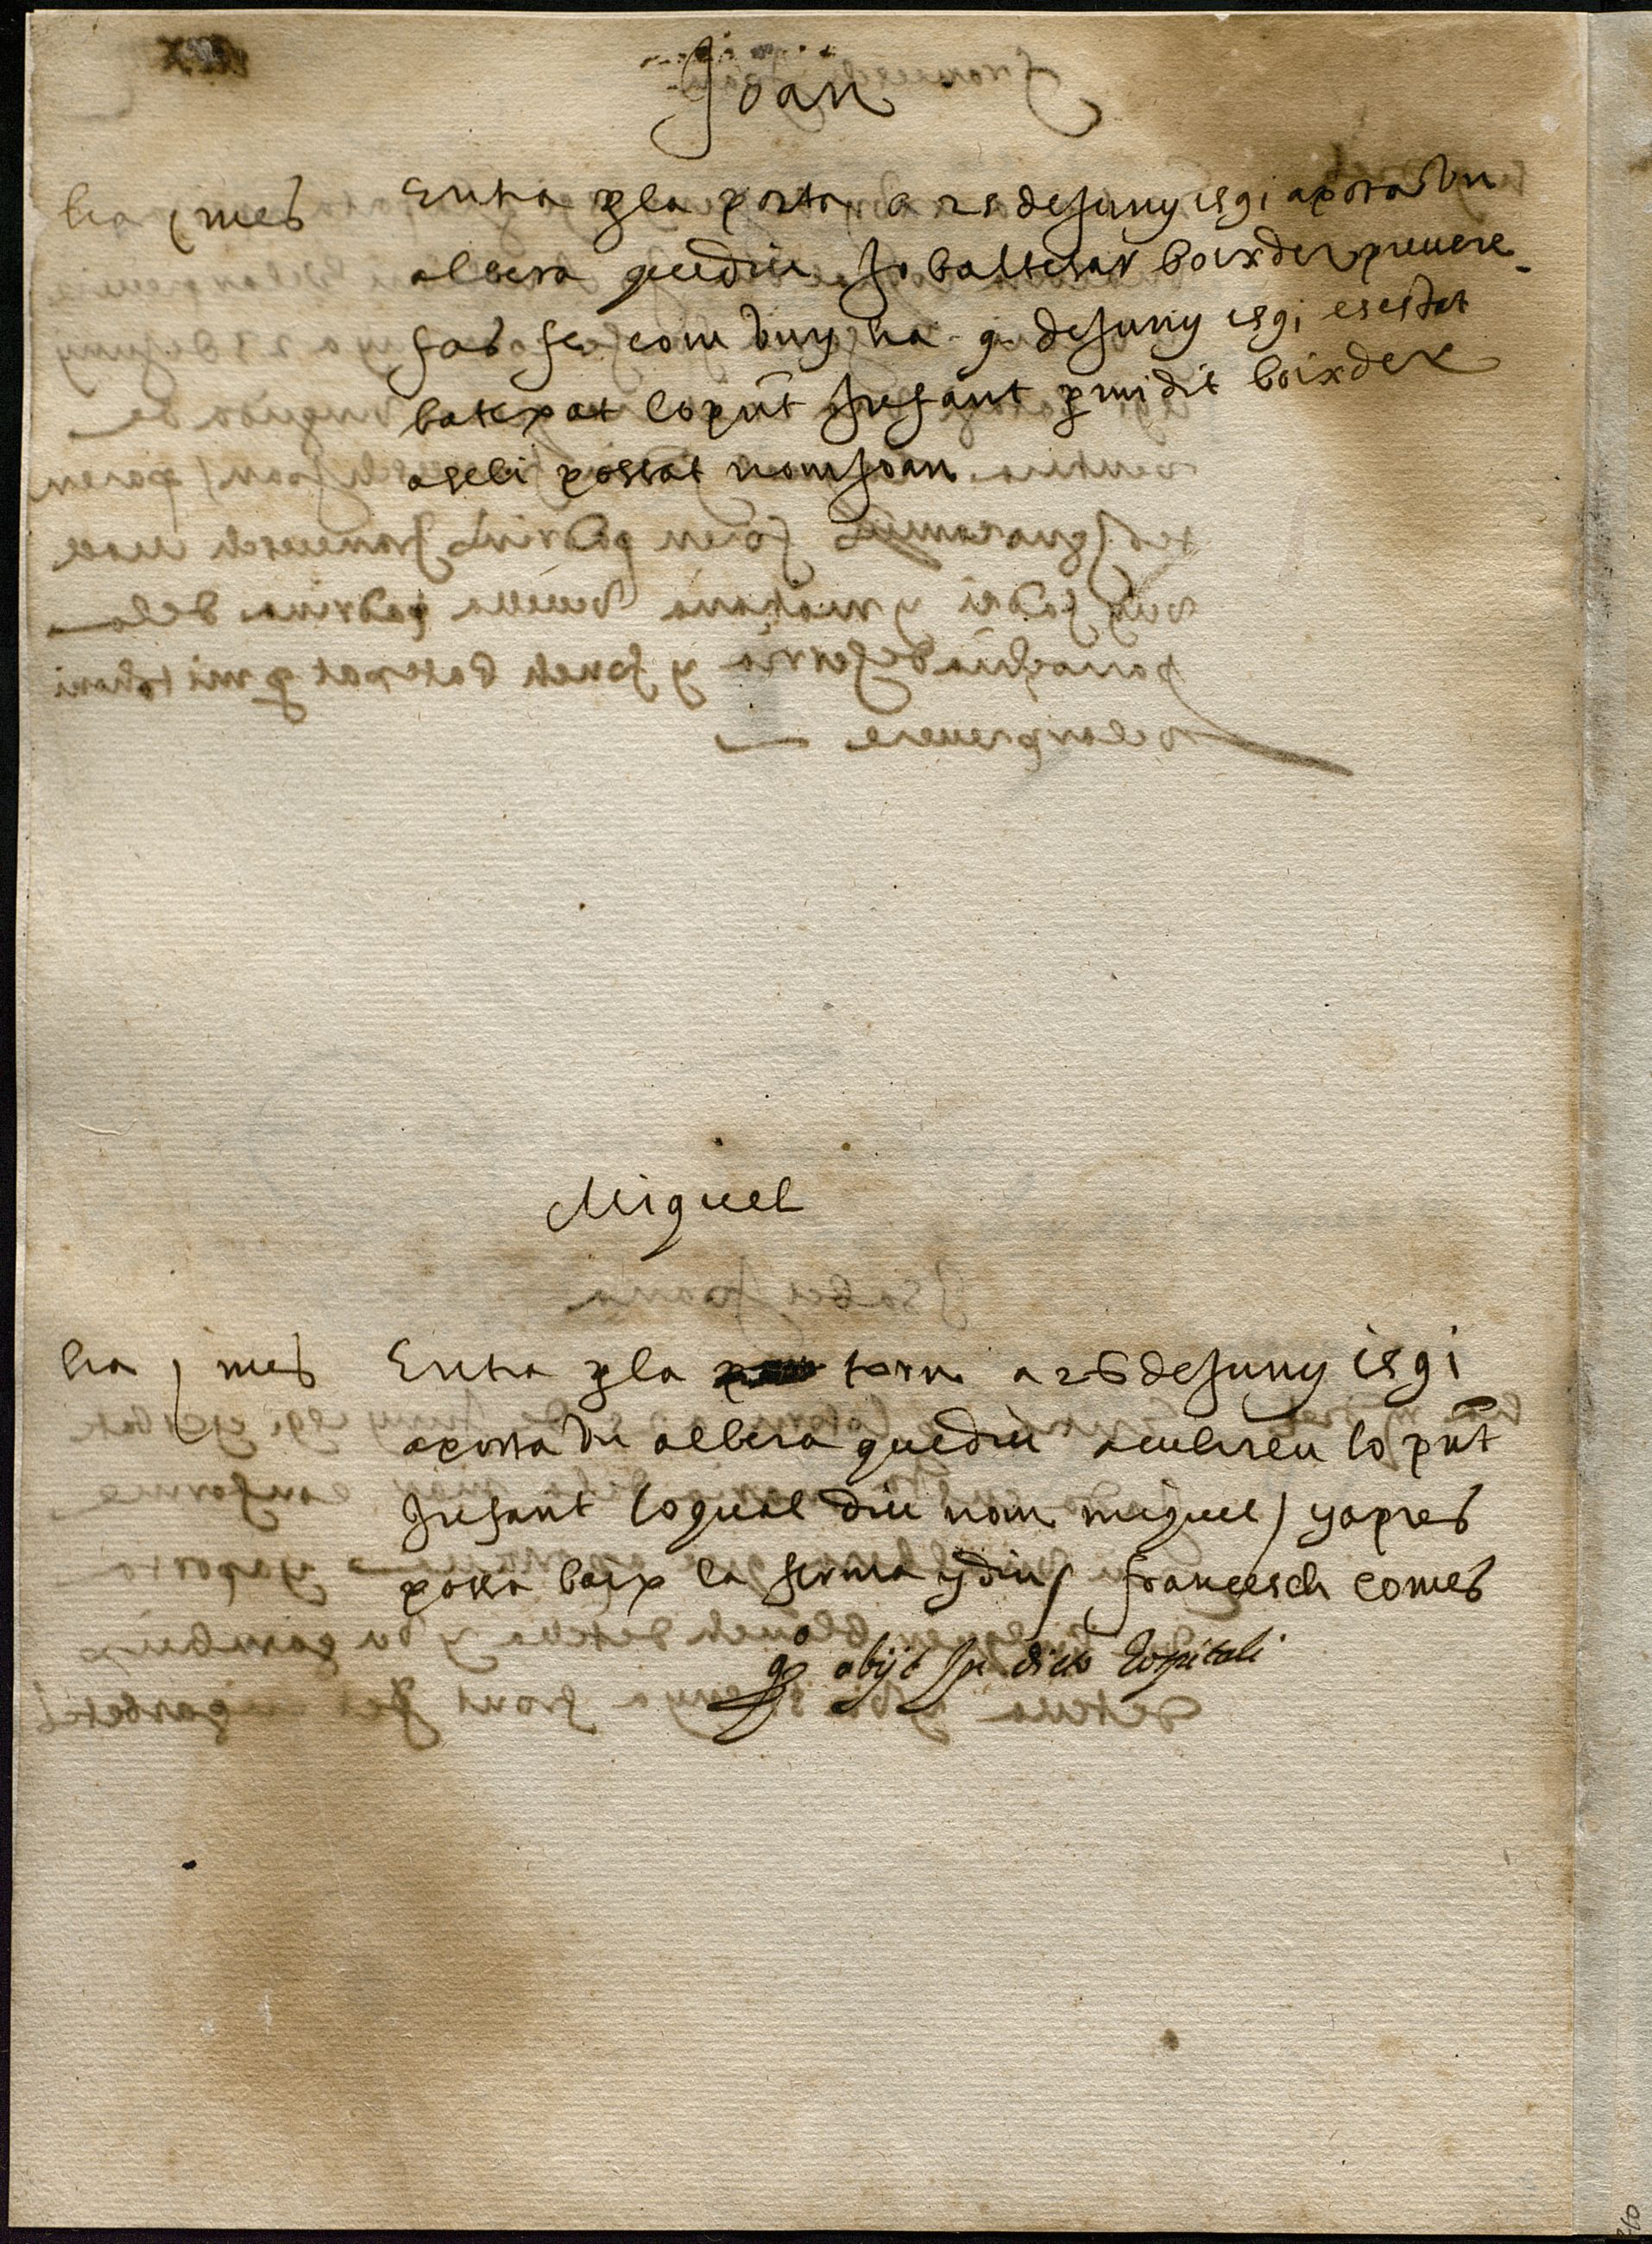 Joan
ha j mes
Entra per la porta a 25 de Juny 1591 aporta vn
albera que diu Jo baltesar boixder preuere
fas fe com vuy ha 9 de Juny 1591 es estat
batejat lo pnt Infant per mi dit boixder
aseli possat nom Joan
Miguel
ha j mes
Entra per la torn a 26 de Juny 1591
aporta vn albera que diu acullireu lo pnt
Infant lo qual diu nom miguel / y apres
possa baix la ferma y diu / francesch comes
obijt in dicto hospitali